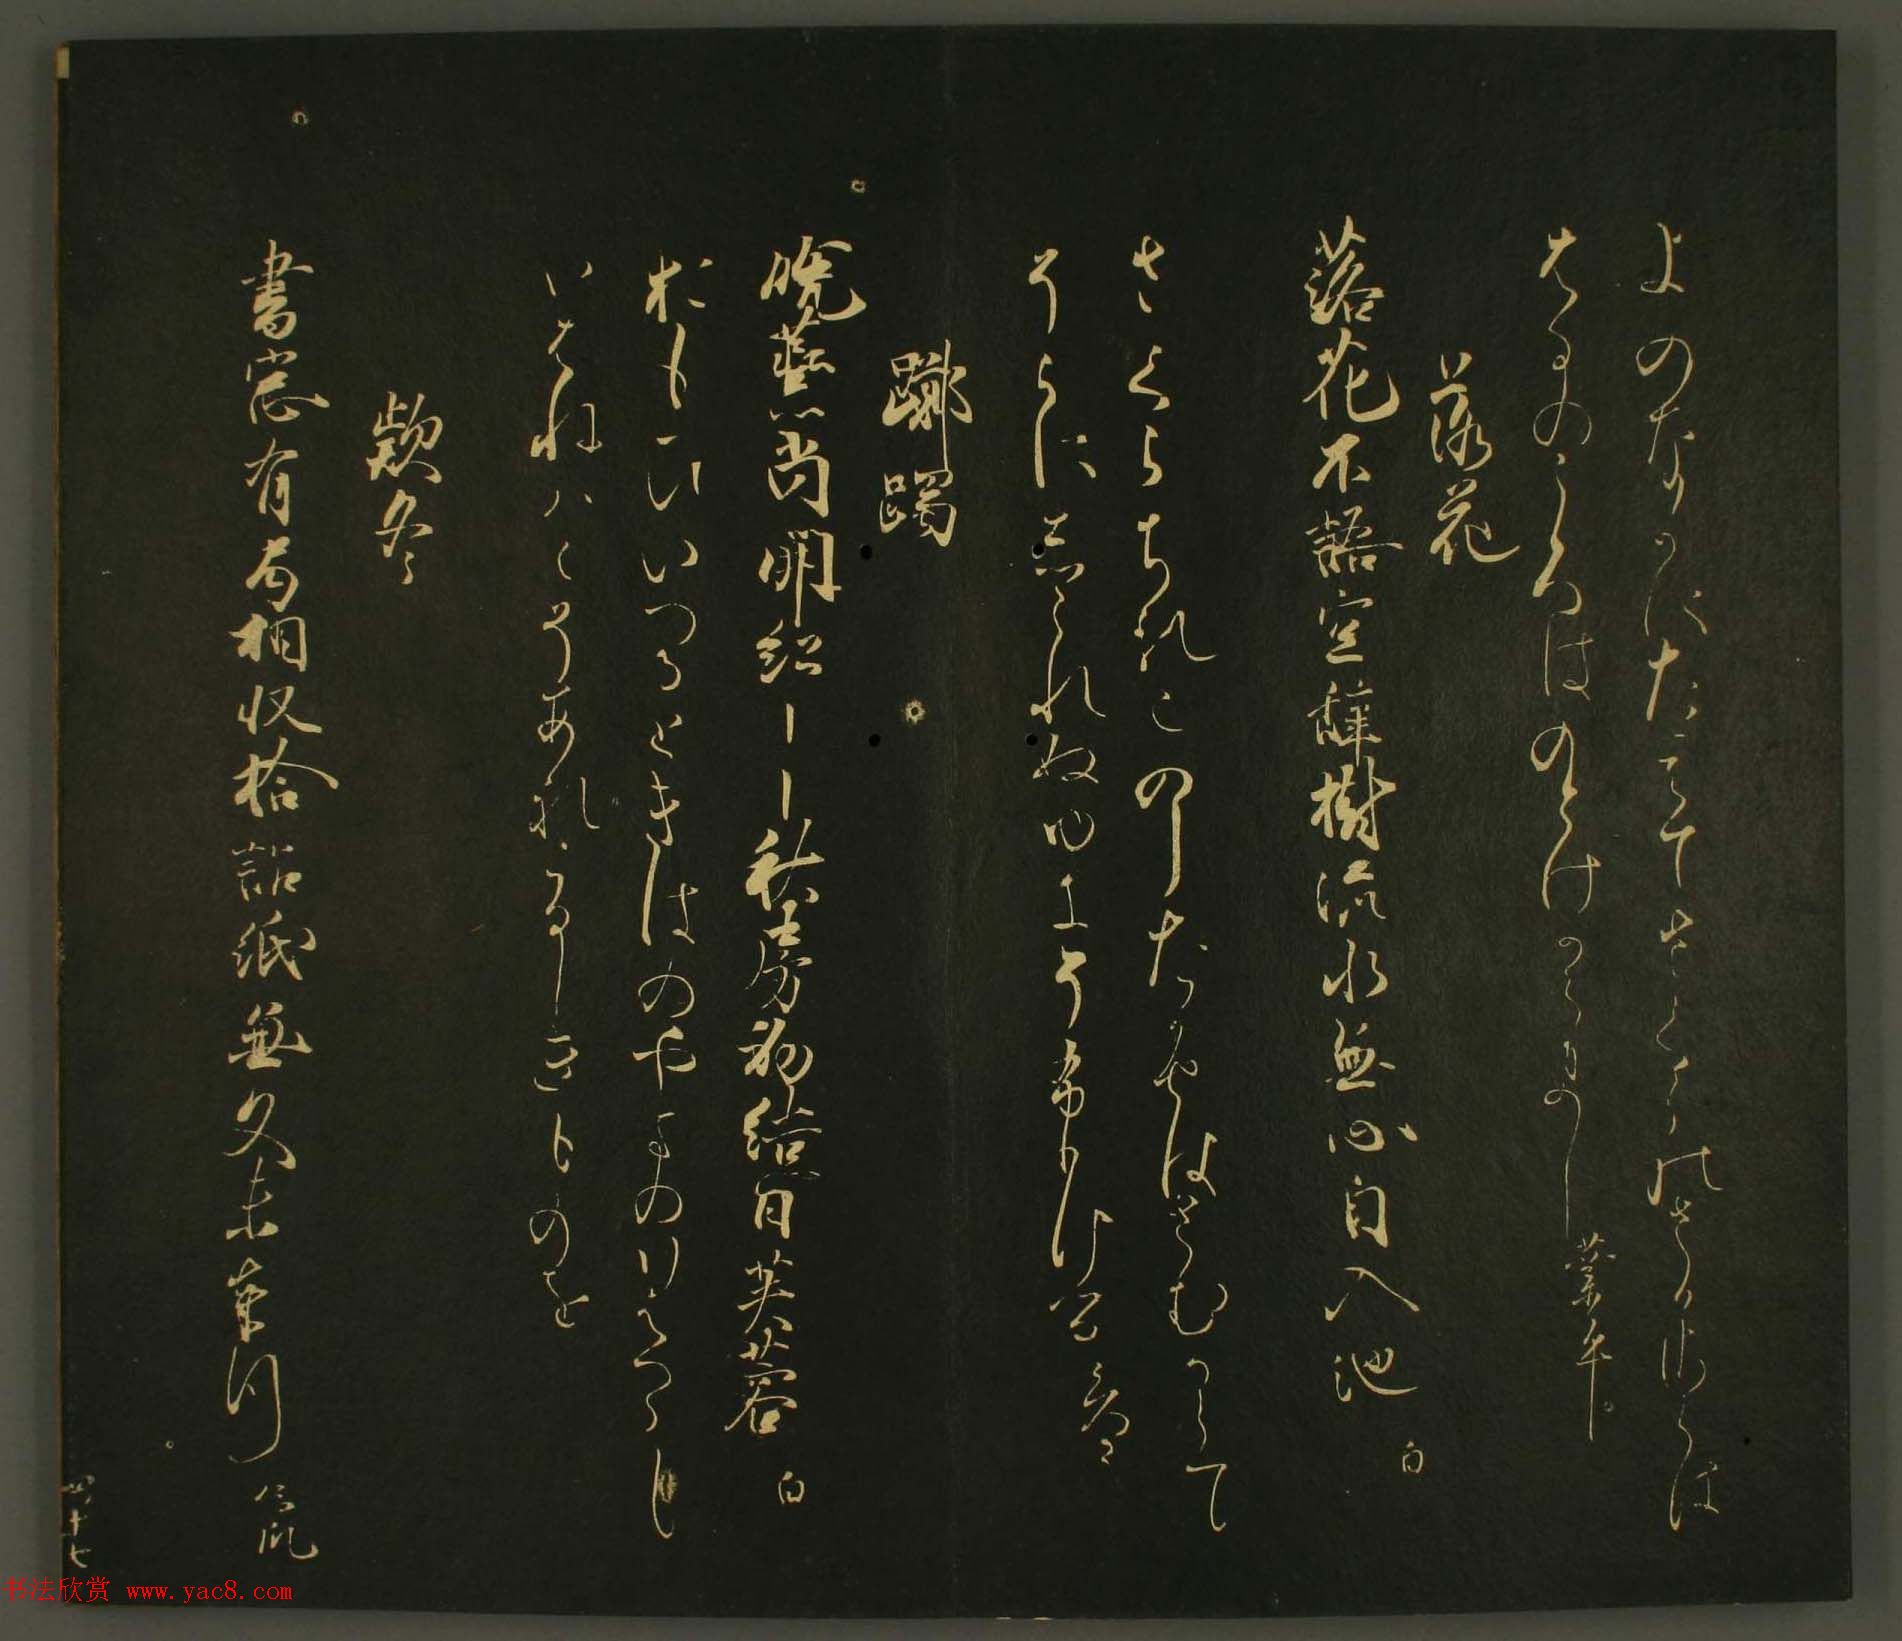 よのなかにたえてさくらのさかさらは
はるのこゝろはのとけからまし 業平
落花
落花不語空辞樹流水無心自入池 白
さくらちるこのしたかせはさむからて
そらにしられぬゆきそふりける 貫之
躑躅
晩蘂尚開紅躑躅秋房初結白芙蓉 白
おもひいつるときはのやまのいはつつし
いはねはこそあれこひしきものを
款冬
書窓有巻相収拾詔紙無文未奉行
四十七
书法欣赏 www.yac8.com